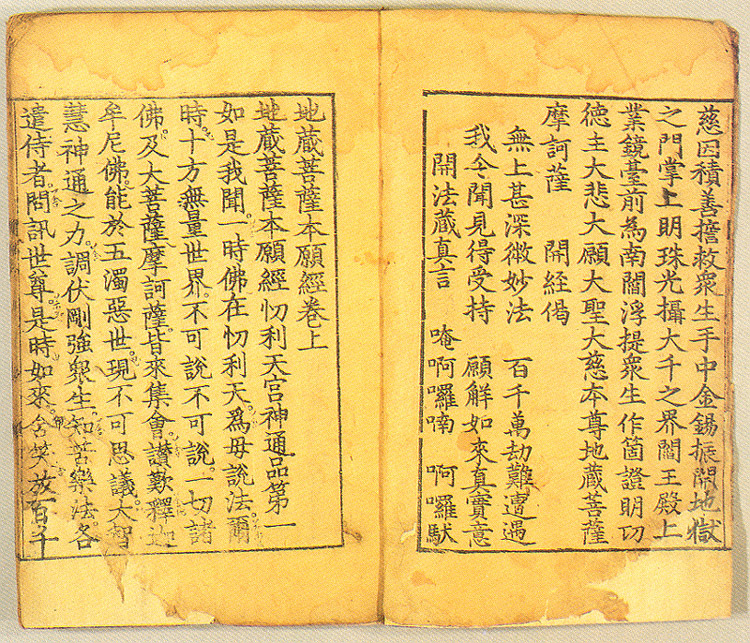 慈因積善擔救衆生手中金錫振開地獄
之門掌上明珠光攝大千之界閻王殿上
業鏡臺前為南閻浮提衆生作箇證明功
德主大悲大願大聖大慈本尊地藏菩薩
摩訶薩　開経偈
無上甚深微妙法　百千萬劫難遭遇
我今聞見得受持　願解如來真實意
開法蔵真言　唵啊囉喃　啊囉馱
地蔵菩薩本願經卷上
地蔵菩薩本願經忉利天宮神通品第一
如是我聞一時佛在忉利天爲母說法爾
時十方無量世界不可說不可說一切諸
佛及大菩薩摩訶薩皆來集會讃歎釋迦
牟尼佛能於五濁惡世現不可思議大智
慧神通之力調伏剛強衆生知苦樂法各
遣侍者問訊世尊是時如來含笑放百千